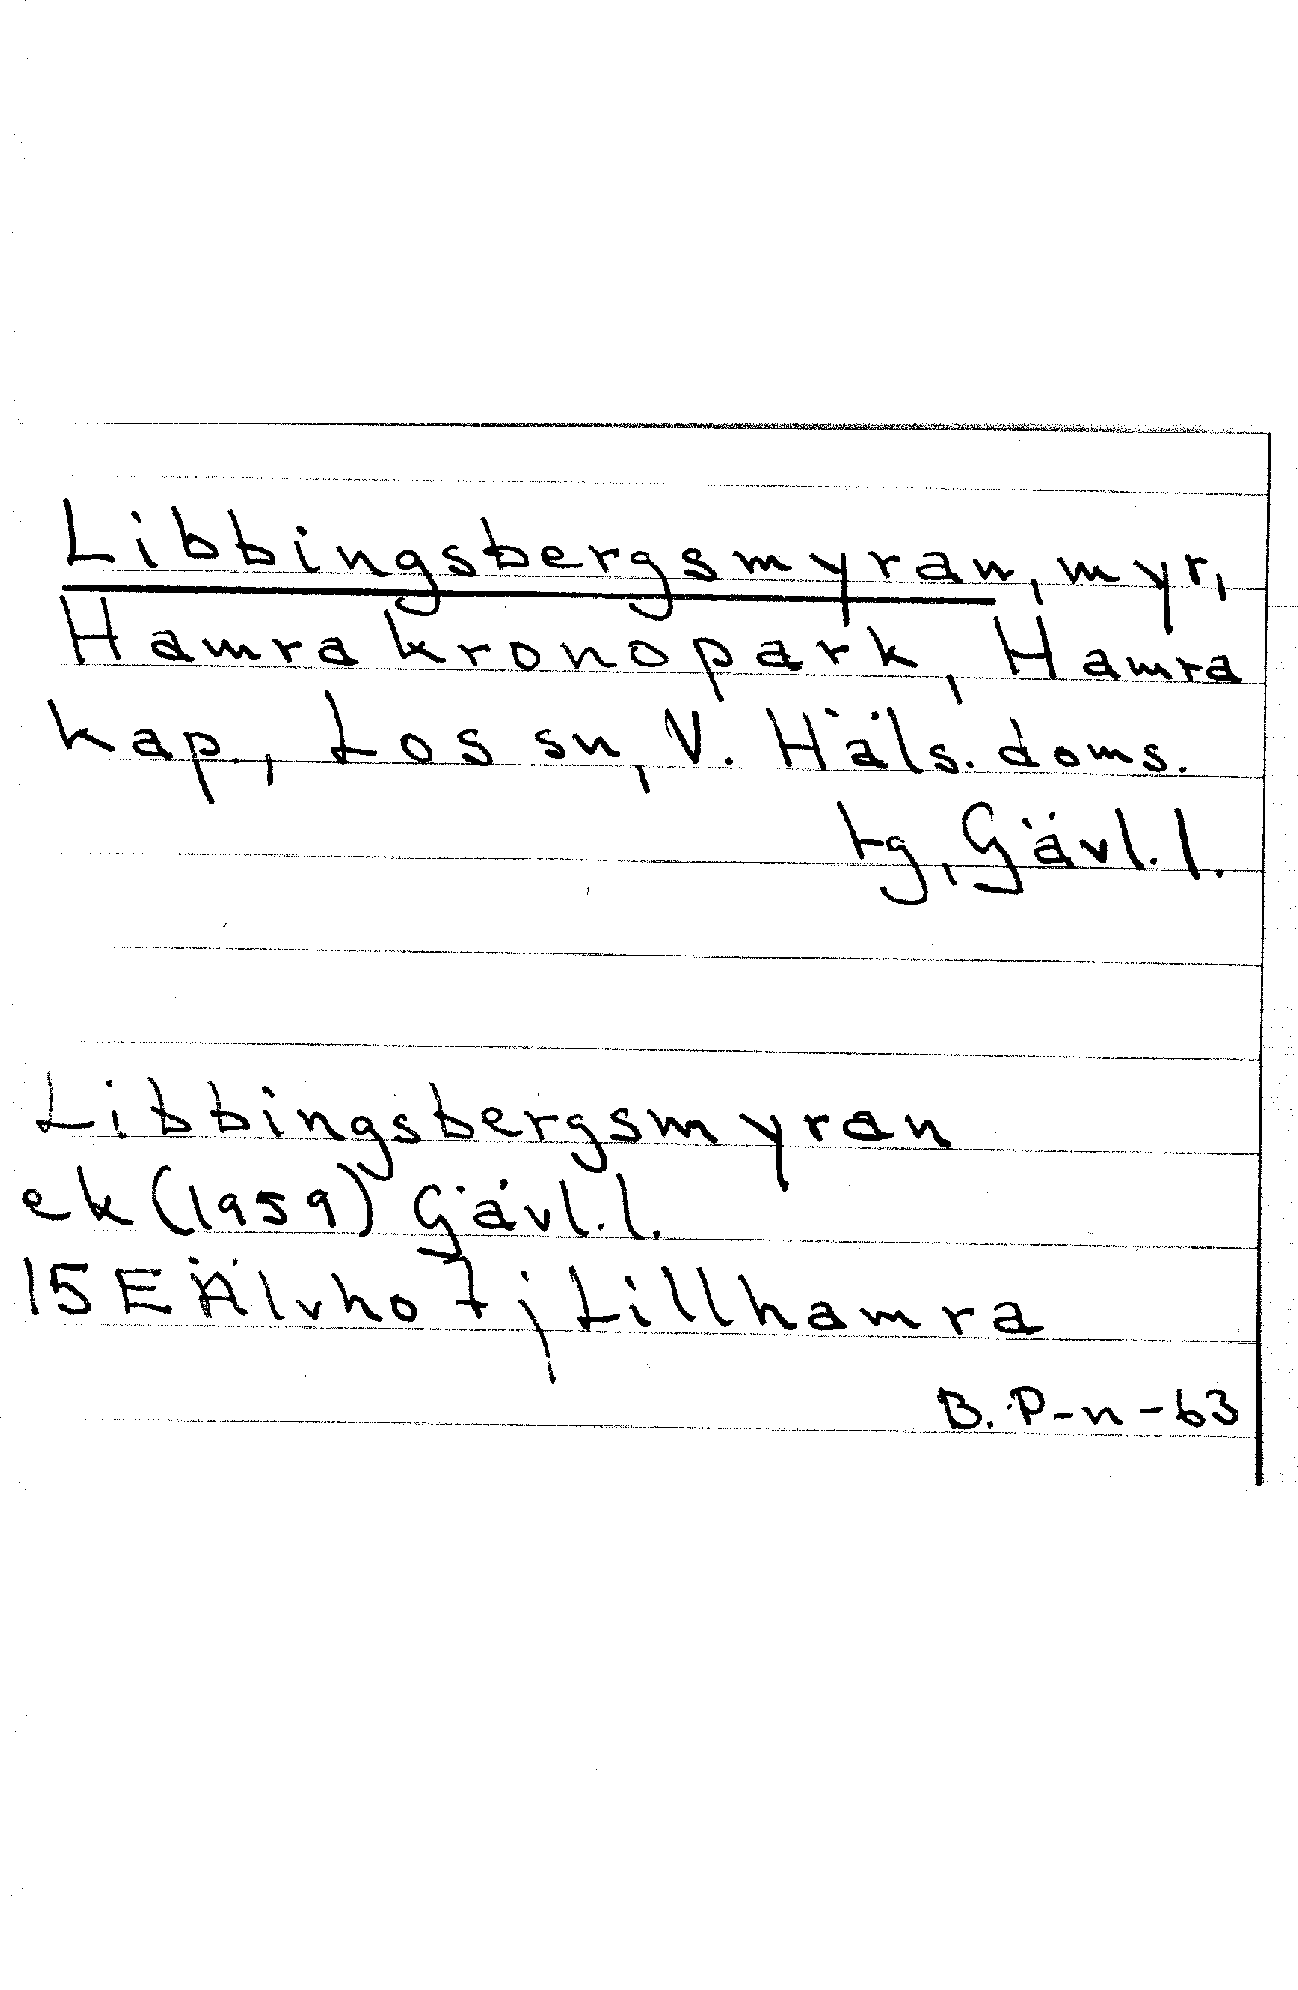 Libbingsbergsmyran, myr,
Hamra kronopark, Hamra
kap., Los sn, V. Häls. doms.
tg, Gävl. l.
Libbingsbergsmyran
ek (1959) Gävl. l.
15 E Älvho 7; Lillhamra
B. P-n -63